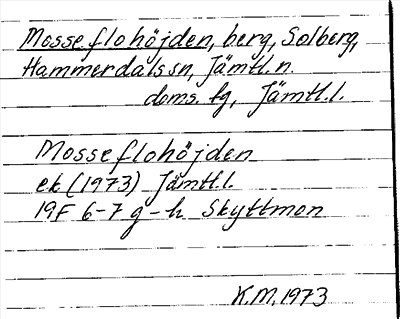 Mosseflohöjden, berg, Solberg,
Hammerdals sn, Jämtl. n.
doms. fg, Jämtl. l.
Mosseflohöjden
ek (1973) Jämtl. l.
19F 6-7 g-h Skyttmon
K.M. 1973